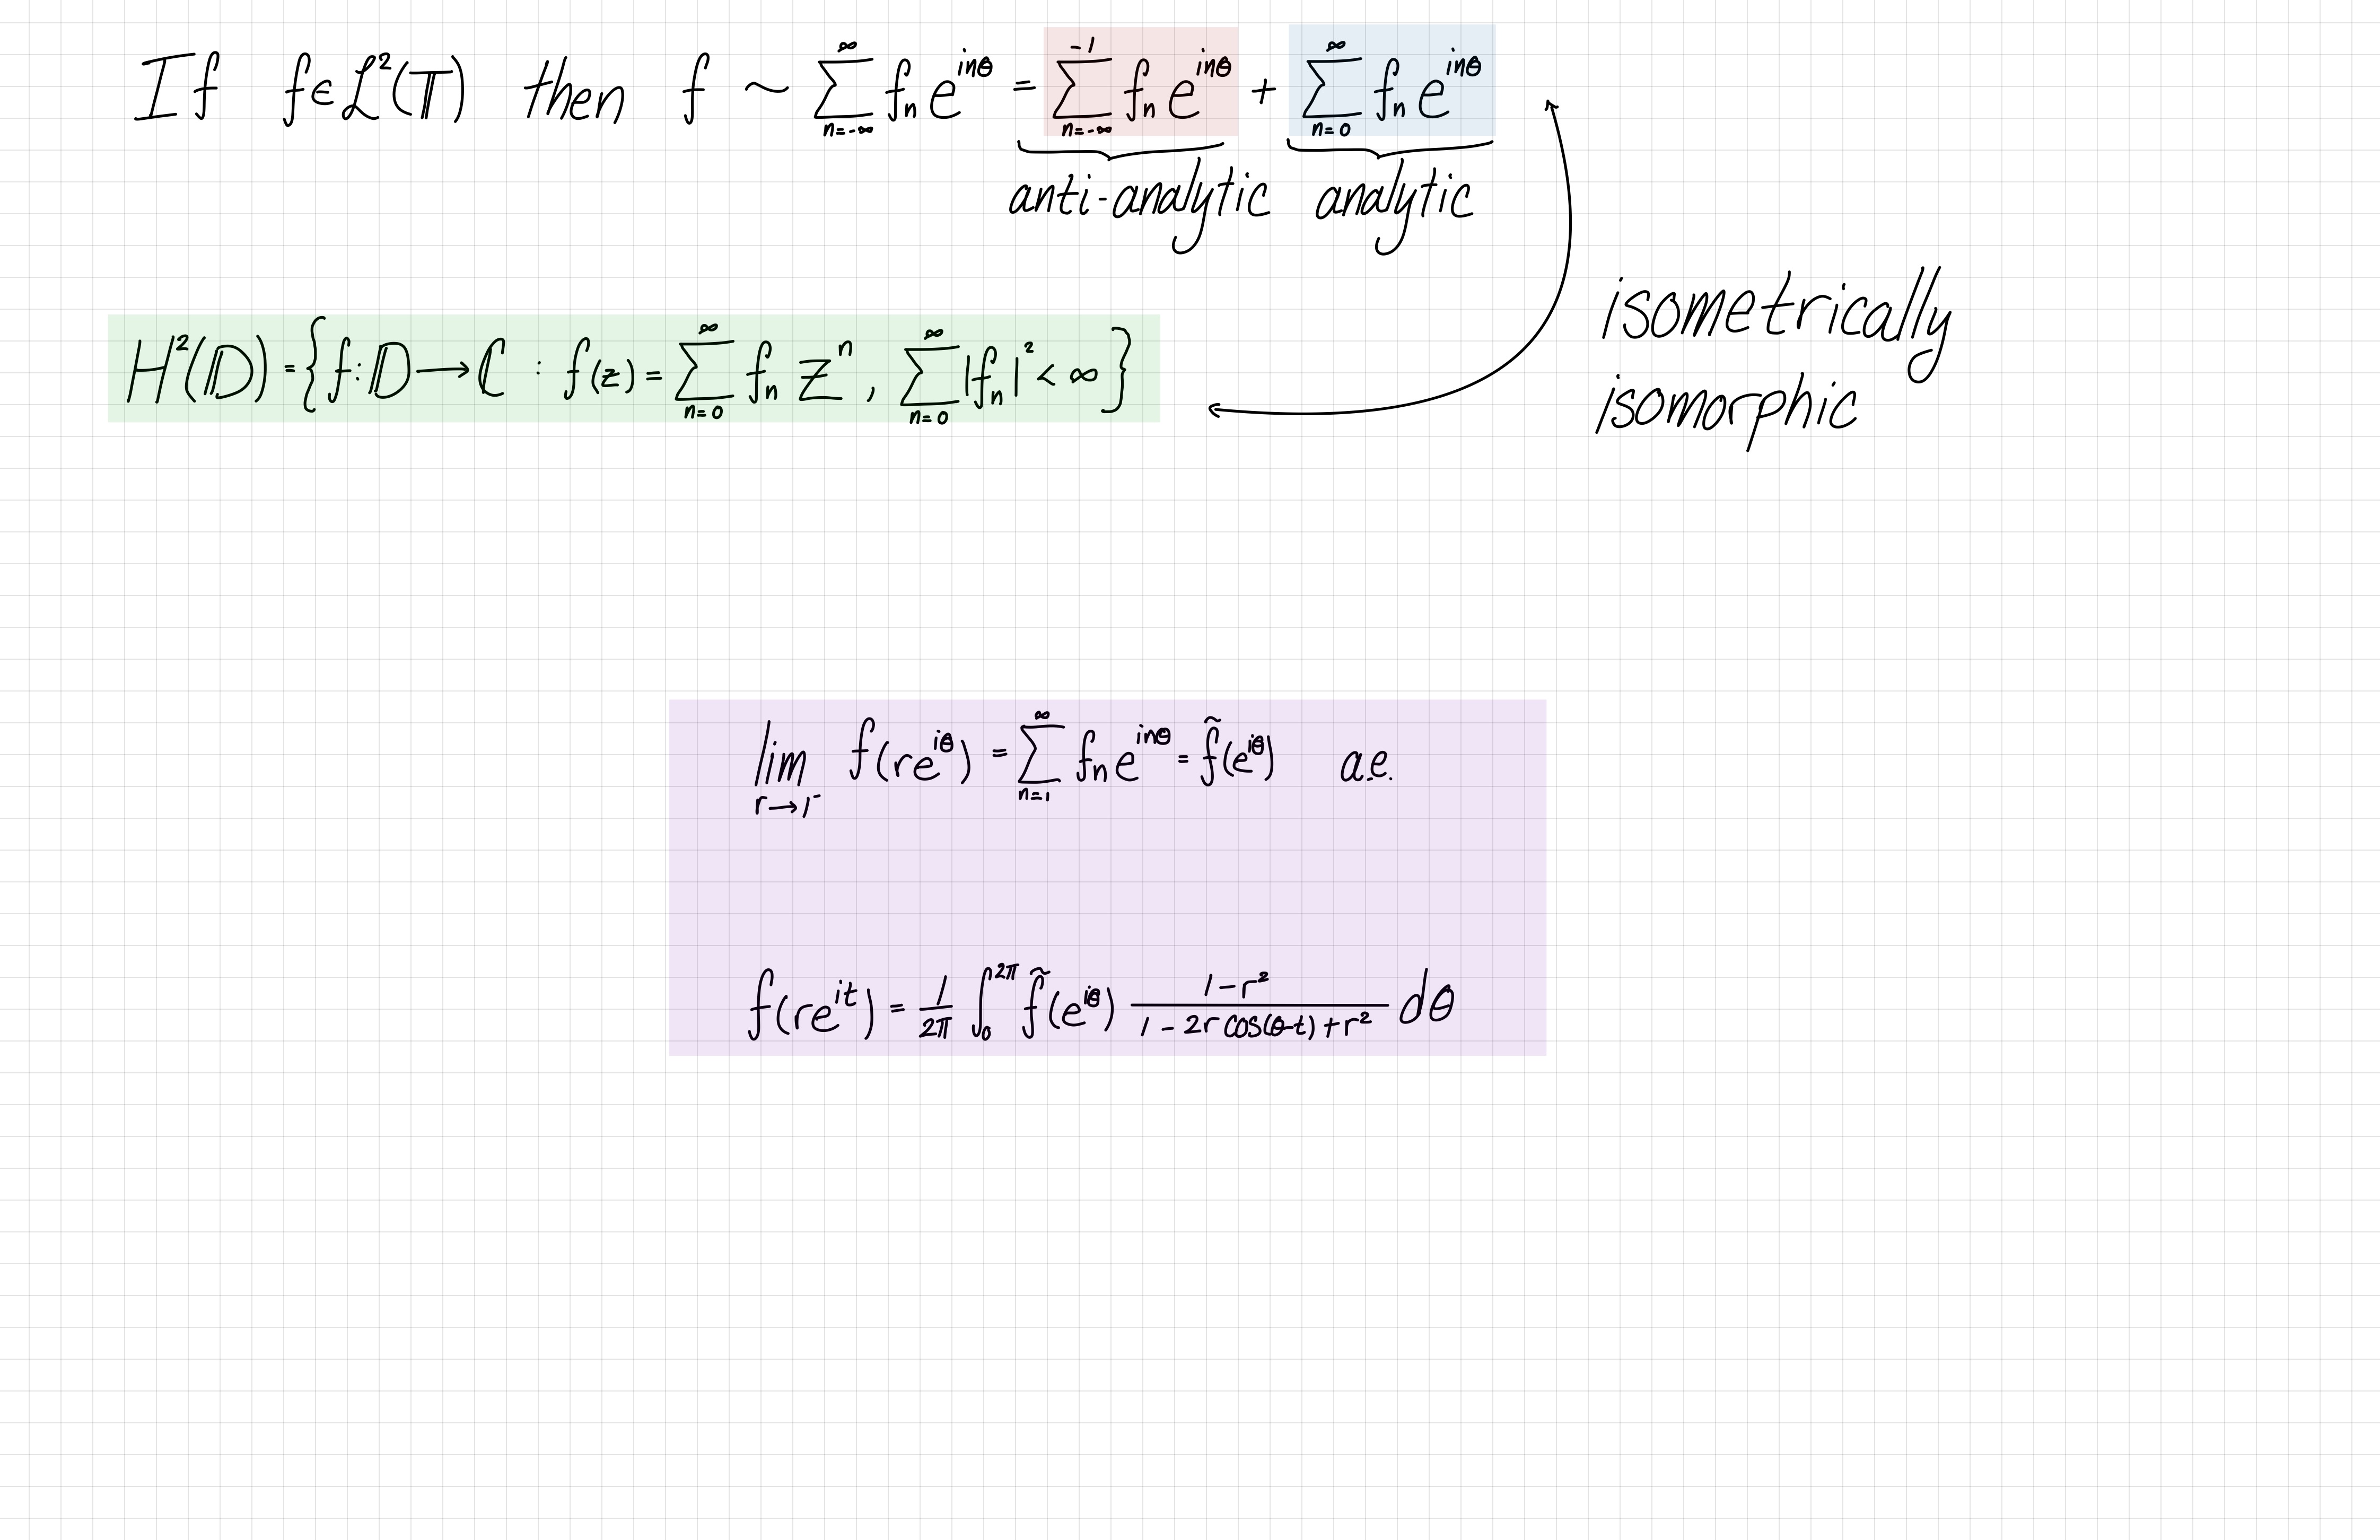 If f∈ℒ²(𝕋) then f ~ ∑_{n=-∞}^{∞} f_n e^{inθ} = ∑_{n=-∞}^{-1} f_n e^{inθ} + ∑_{n=0}^{∞} f_n e^{inθ}
anti-analytic analytic
isometrically
H²(𝔻) = {f: 𝔻 → ℂ : f(z) = ∑_{n=0}^{∞} f_n z^n, ∑_{n=0}^{∞} |f_n|² < ∞}
isomorphic
lim_{r→1⁻} f(re^{iθ}) = ∑_{n=1}^{∞} f_n e^{inθ} = f̃(e^{iθ}) a.e.
f(re^{it}) = \frac{1}{2π} ∫_0^{2π} f̃(e^{iθ}) \frac{1-r²}{1-2r cos(θ-t)+r²} dθ